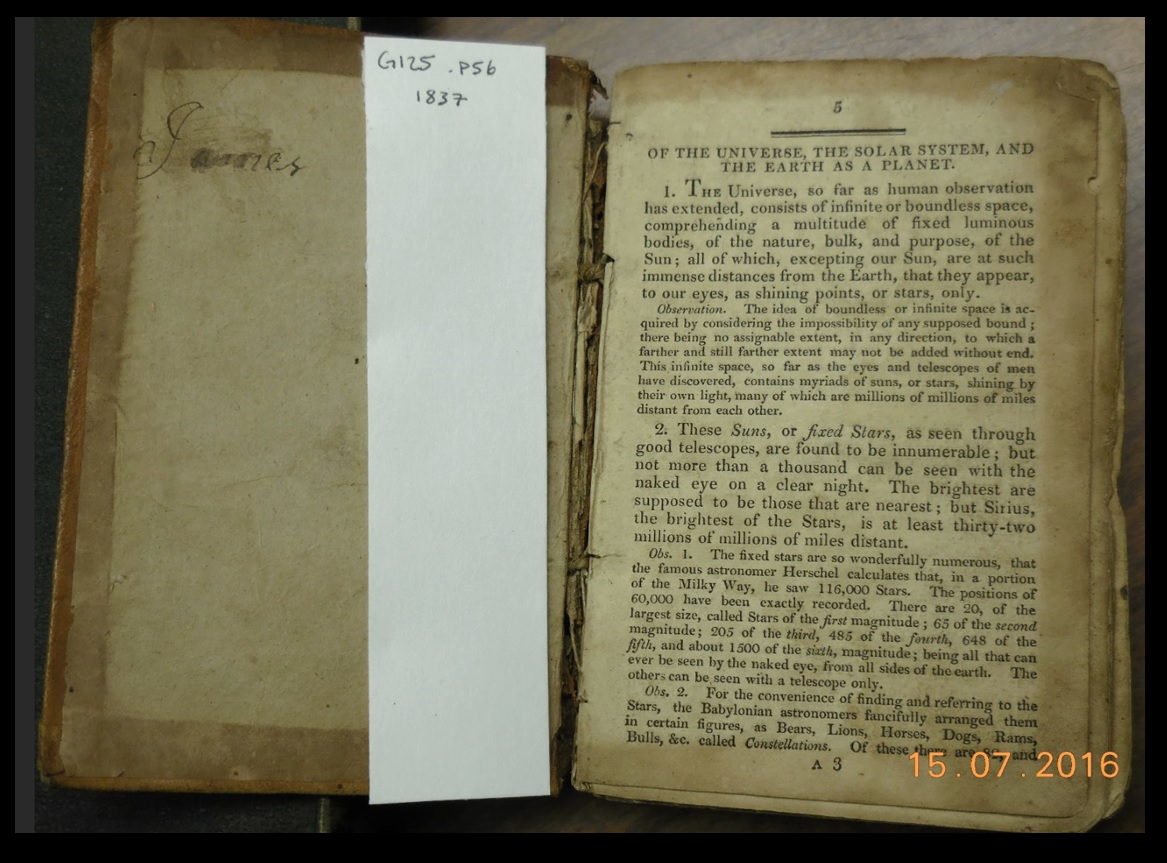 James
G125 .P56
1837
5
OF THE UNIVERSE, THE SOLAR SYSTEM, AND
THE EARTH AS A PLANET.
1. THE Universe, so far as human observation
has extended, consists of infinite or boundless space,
comprehending a multitude of fixed luminous
bodies, of the nature, bulk, and purpose, of the
Sun; all of which, excepting our Sun, are at such
immense distances from the Earth, that they appear,
to our eyes, as shining points, or stars, only.
Observation. The idea of boundless or infinite space is ac-
quired by considering the impossibility of any supposed bound;
there being no assignable extent, in any direction, to which a
farther and still farther extent may not be added without end.
This infinite space, so far as the eyes and telescopes of men
have discovered, contains myriads of suns, or stars, shining by
their own light, many of which are millions of millions of miles
distant from each other.
2. These Suns, or fixed Stars, as seen through
good telescopes, are found to be innumerable; but
not more than a thousand can be seen with the
naked eye on a clear night. The brightest are
supposed to be those that are nearest; but Sirius,
the brightest of the Stars, is at least thirty-two
millions of millions of miles distant.
Obs. 1. The fixed stars are so wonderfully numerous, that
the famous astronomer Herschel calculates that, in a portion
of the Milky Way, he saw 116,000 Stars. The positions of
60,000 have been exactly recorded. There are 20, of the
largest size, called Stars of the first magnitude; 65 of the second
magnitude; 205 of the third, 485 of the fourth, 648 of the
fifth, and about 1500 of the sixth, magnitude; being all that can
ever be seen by the naked eye, from all sides of the earth. The
others can be seen with a telescope only.
Obs. 2. For the convenience of finding and referring to the
Stars, the Babylonian astronomers fancifully arranged them
in certain figures, as Bears, Lions, Horses, Dogs, Rams,
Bulls, &c. called Constellations. Of these there are and
A 3
15.07.2016